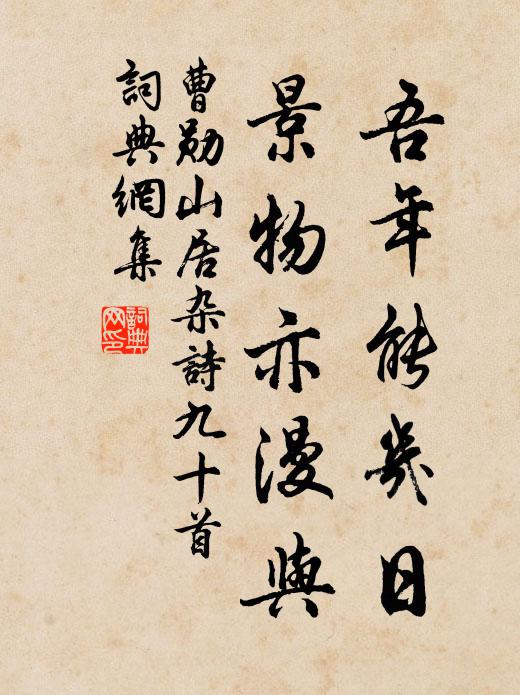 吾年能幾日
景物亦漫與
曹勛山居杂詩九十首
詞典網集
詞典网印